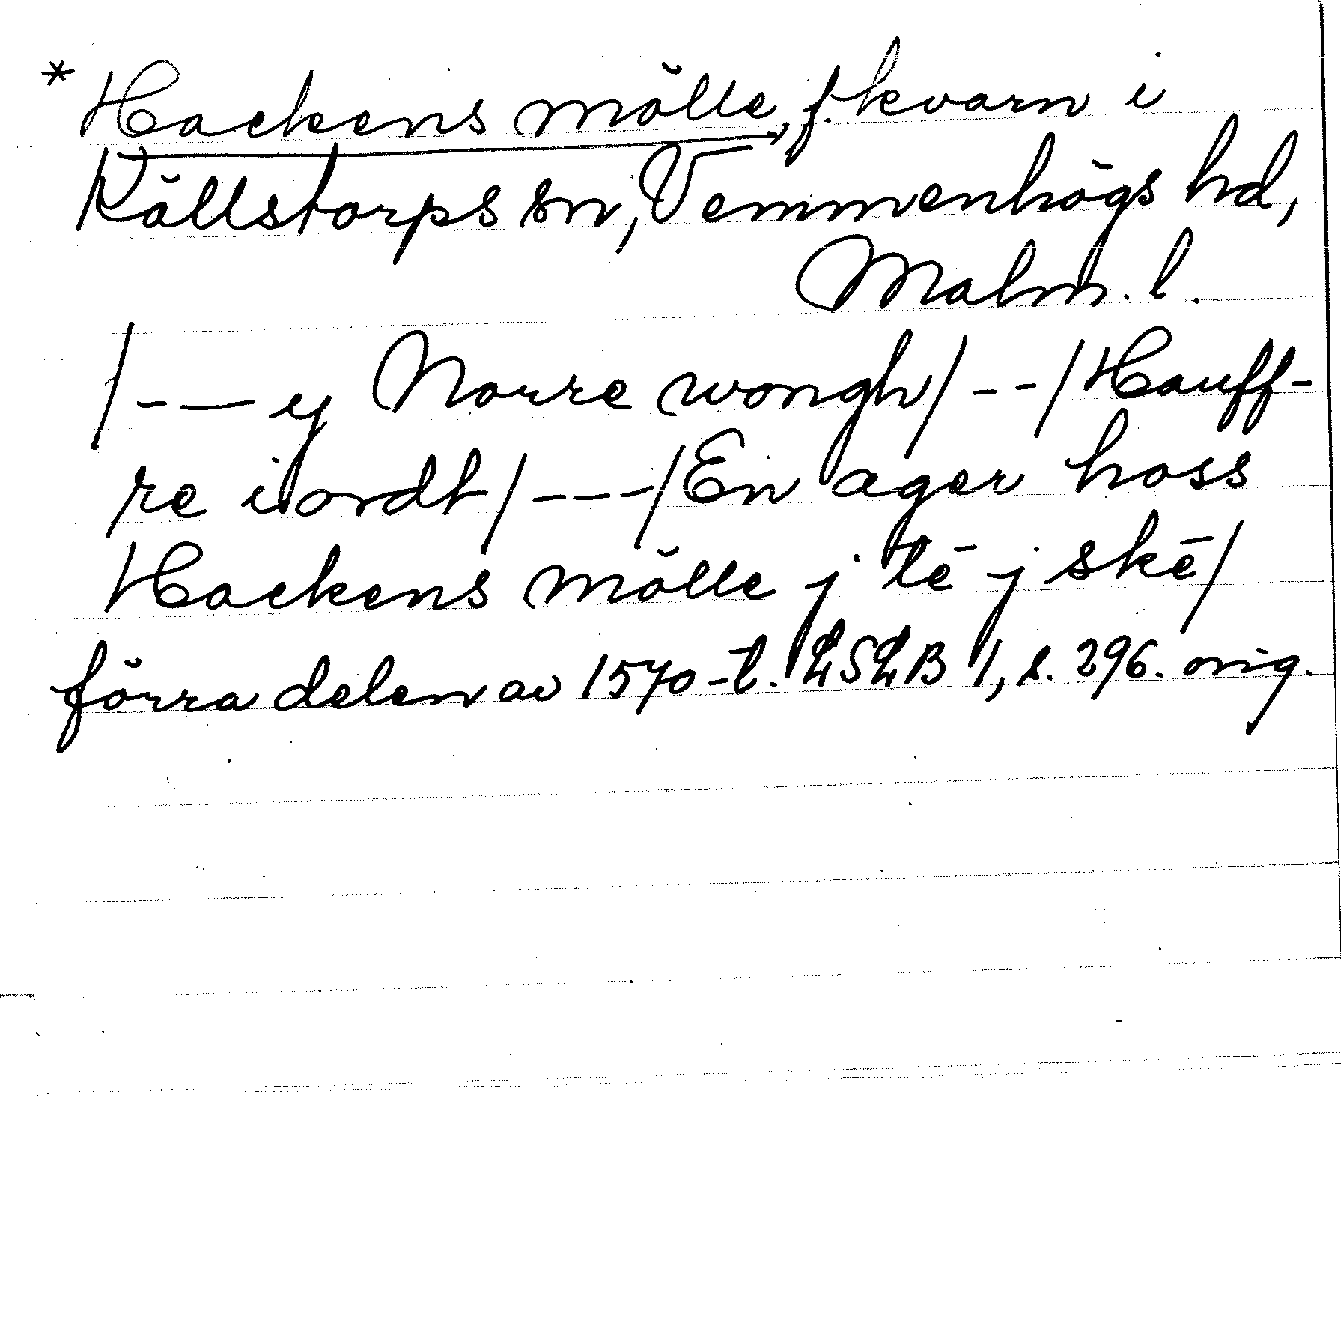 * Hackens mölle, f. kvarn i
Källstorps sn, Vemmenhögs hd,
Malm. l.
/--- y Norre wongh/--/Hauff-
re iordt/---/En ager hoss
Hackens mölle j tē j skē/
förra delen av 1570-t. LSLB 1, s. 296. orig.